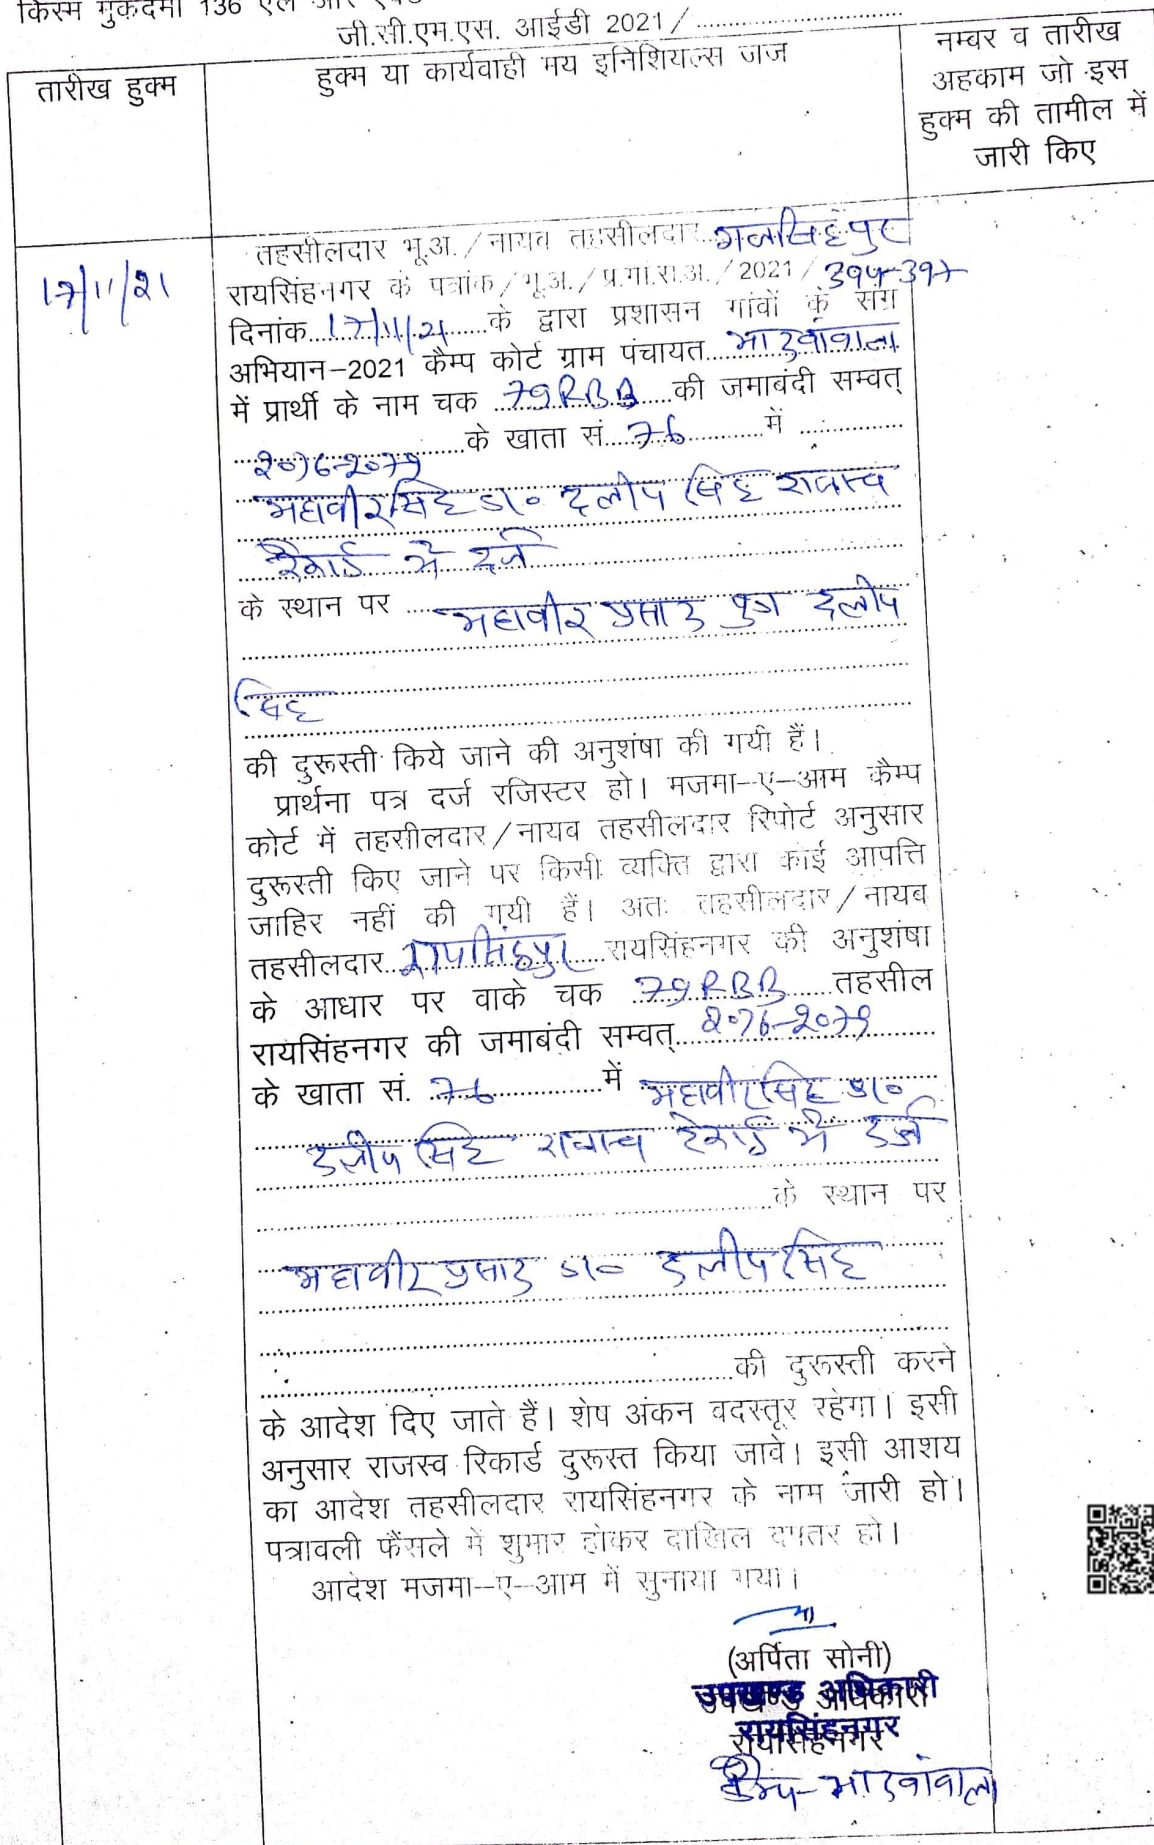 किस्म मुकदमा 136 एल आर
जी.सी.एम.एस. आईडी 2021/..............................
तारीख हुक्म
हुक्म या कार्यवाही मय इनिशियल्स जज
नम्बर व तारीख
अहकाम जो इस
हुक्म की तामील में
जारी किए
17/11/21
तहसीलदार भू.अ./नायब तहसीलदार गजसिंहपुर
रायसिंहनगर के पत्रांक/भू.अ./प्र.गां.स.अ./2021/
दिनांक 17/11/21 के द्वारा प्रशासन गांवों के संग
अभियान-2021 कैम्प कोर्ट ग्राम पंचायत
में प्रार्थी के नाम चक 79 RBB की जमाबंदी सम्वत्
2076-2079 के खाता सं. 76 में
महावीरसिंह S/o दलीप सिंह राजस्व
रेकार्ड मे दर्ज
के स्थान पर महावीर प्रसाद पुत्र दलीप
सिंह
की दुरूस्ती किये जाने की अनुशंषा की गयी हैं।
प्रार्थना पत्र दर्ज रजिस्टर हो। मजमा-ए-आम कैम्प
कोर्ट में तहसीलदार/नायब तहसीलदार रिपोर्ट अनुसार
दुरूस्ती किए जाने पर किसी व्यक्ति द्वारा कोई आपत्ति
जाहिर नहीं की गयी हैं। अतः तहसीलदार/नायब
तहसीलदार गजसिंहपुर रायसिंहनगर की अनुशंषा
के आधार पर वाके चक 79 RBB तहसील
रायसिंहनगर की जमाबंदी सम्वत् 2076-2079
के खाता सं. 76 में महावीरसिंह S/o
दलीप सिंह राजस्व रेकार्ड मे दर्ज
के स्थान पर
महावीर प्रसाद S/o दलीप सिंह
की दुरूस्ती करने
के आदेश दिए जाते हैं। शेष अंकन वदस्तूर रहेगा। इसी
अनुसार राजस्व रिकार्ड दुरूस्त किया जावे। इसी आशय
का आदेश तहसीलदार रायसिंहनगर के नाम जारी हो।
पत्रावली फैंसले में शुमार होकर दाखिल दफ्तर हो।
आदेश मजमा-ए-आम में सुनाया गया।
(अर्पिता सोनी)
उपखण्ड अधिकारी
रायसिंहनगर
कैम्प-